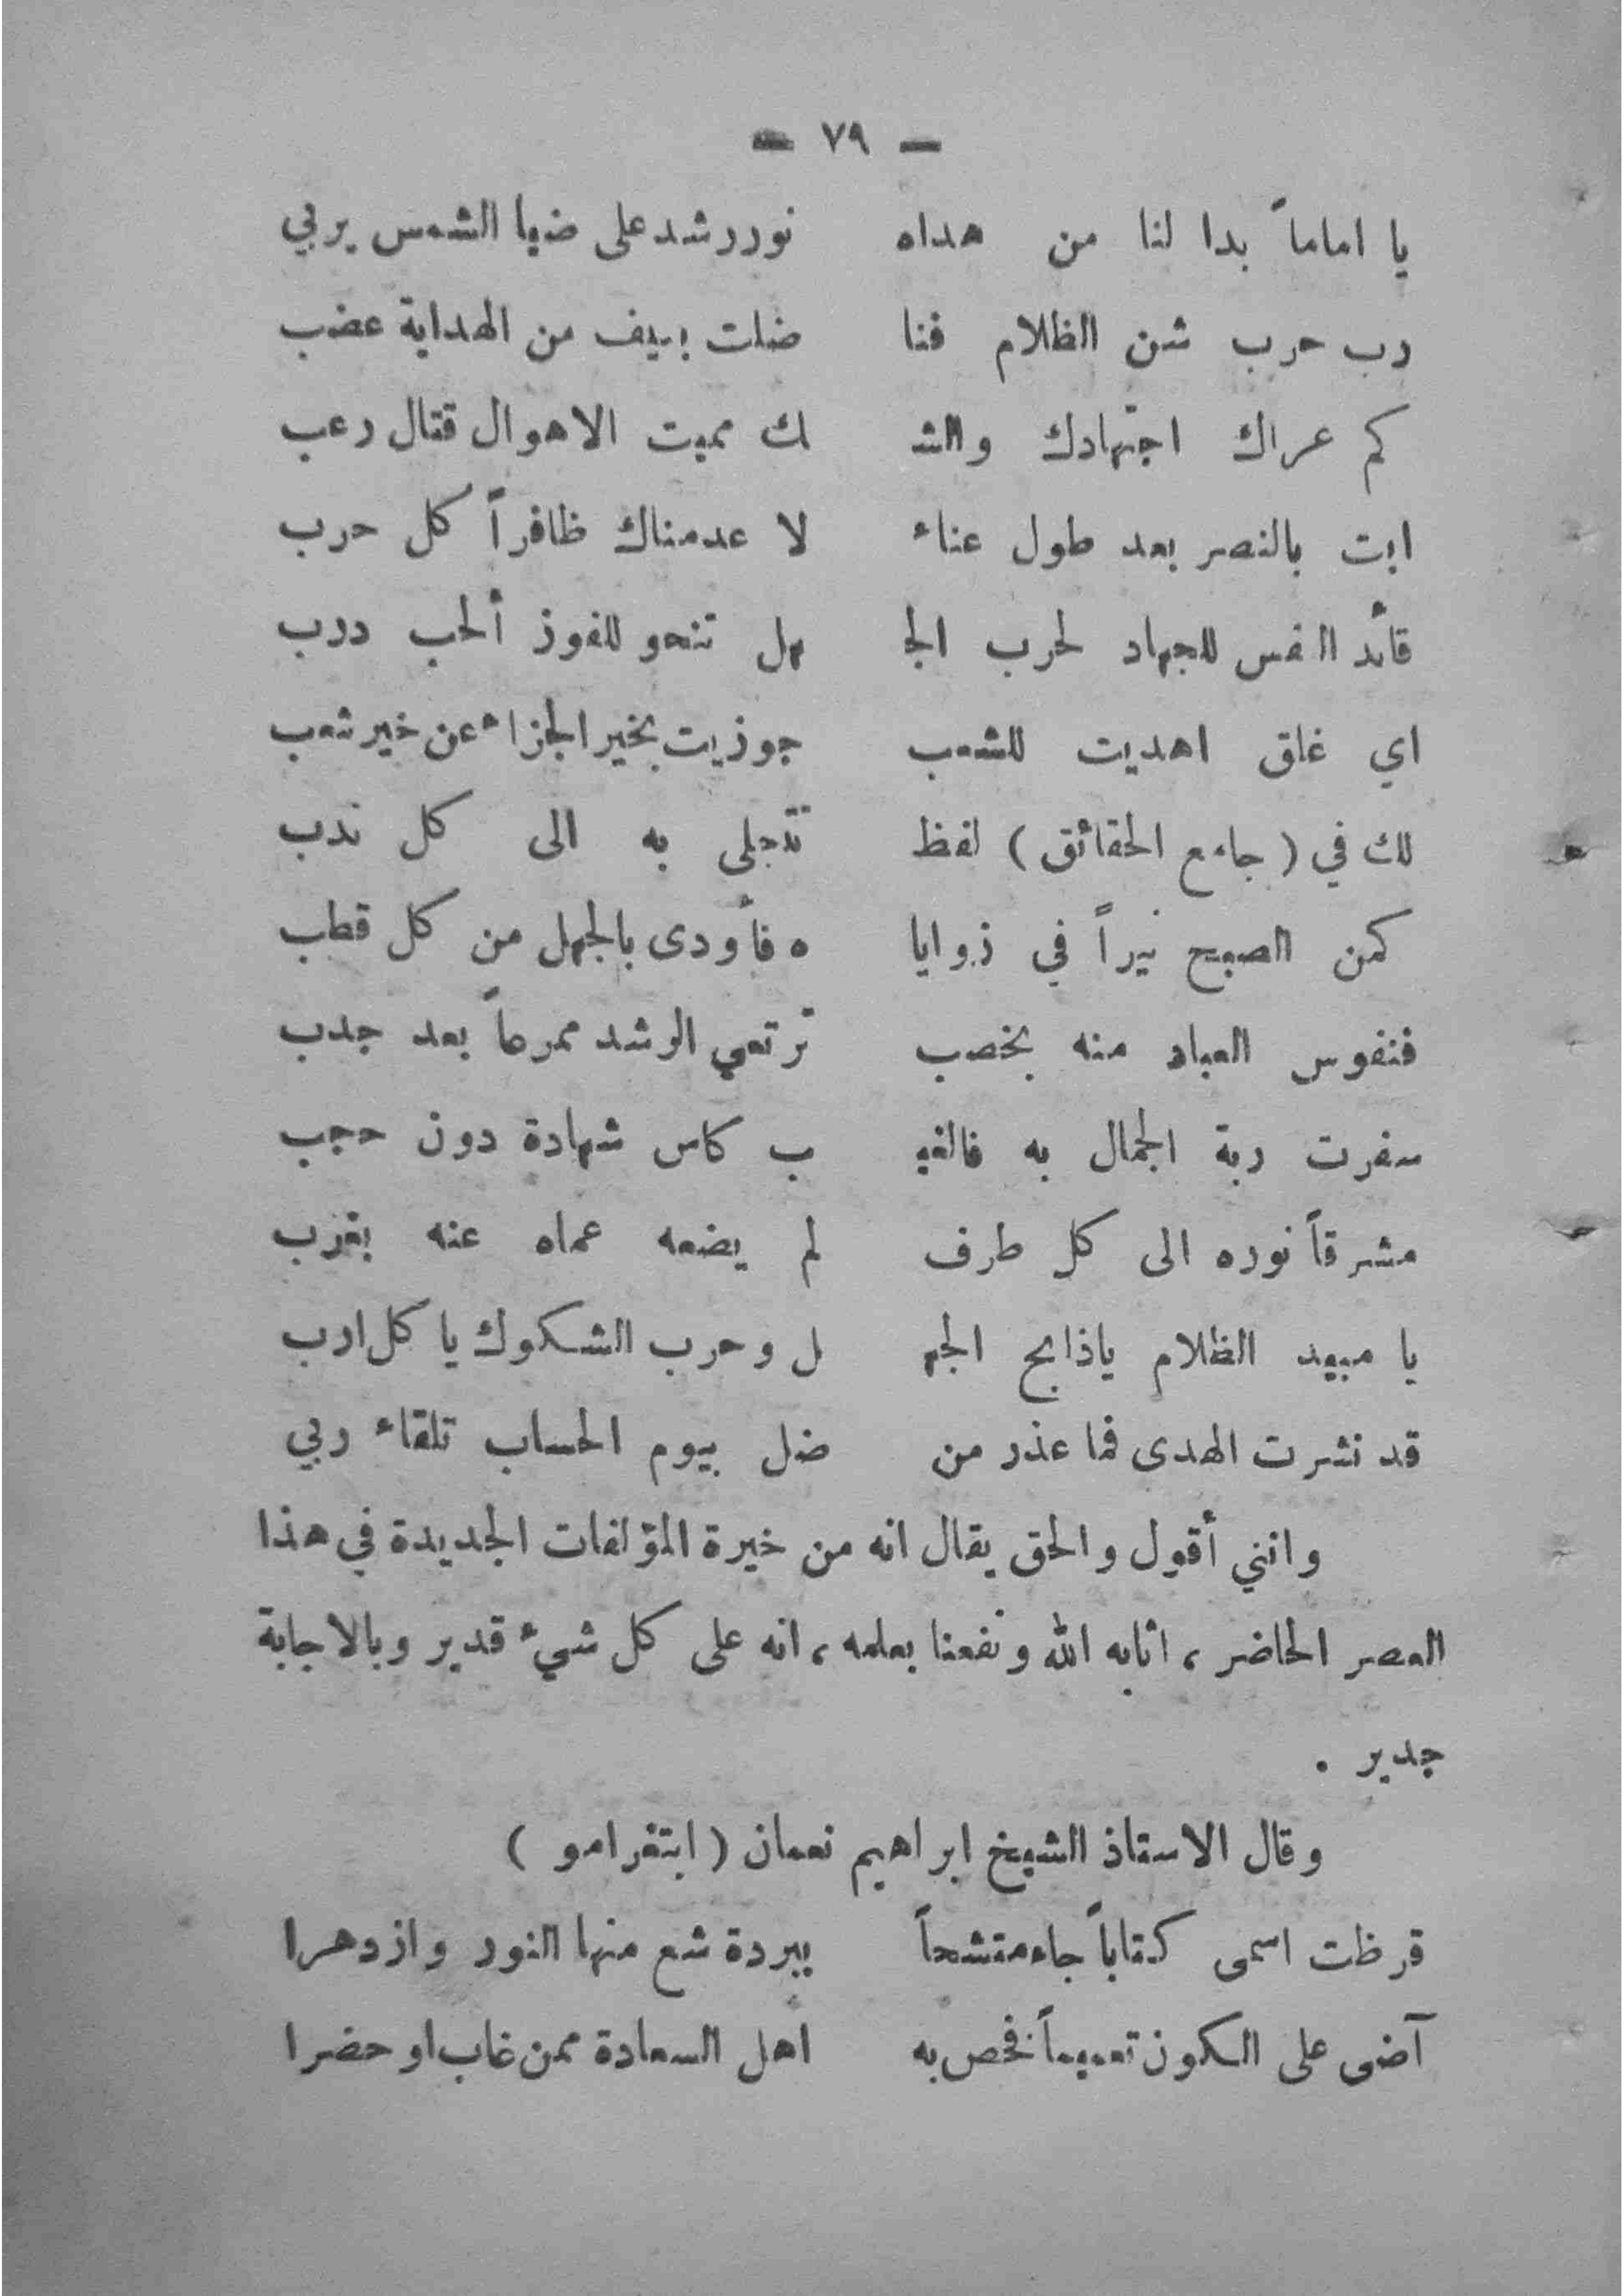 — ٧٩ —
يا اماماً بدا لنا من هداه نور رشد على ضيا الشمس يربي
رب حرب شن الظلام فنا ضلت بسيف من الهداية عضب
كم عراك اجتهادك والش ك مميت الاهوال قتال رعب
ابت بالنصر بعد طول عناء لا عدمناك ظافراً كل حرب
قائد النفس للجهاد لحرب الج هل تنحو للفوز ألحب درب
اي غلق اهديت للشعب جوزيت بخير الجزاء عن خير شعب
لك في ( جامع الحقائق ) لفظ تتجلى به الى كل ندب
كمن الصبح نيراً في زوايا ه فأودى بالجهل من كل قطب
فنفوس العباد منه بخصب ترتعي الرشد ممرعاً بعد جدب
سفرت ربة الجمال به فالغي ب كاس شهادة دون حجب
مشرقاً نوره الى كل طرف لم يضعه عماه عنه بغرب
يا مبيد الظلام ياذابح الجه ل وحرب الشكوك يا كل ارب
قد نشرت الهدى فما عذر من ضل بيوم الحساب تلقاء ربي
وانني أقول والحق يقال انه من خيرة المؤلفات الجديدة في هذا
العصر الحاضر ، اثابه الله ونفعنا بعلمه ، انه على كل شيء قدير وبالاجابة
جدير .
وقال الاستاذ الشيخ ابراهيم نعمان ( ابتغرامو )
قرظت اسمى كتاباً جاء متشحاً ببردة شع منها النور وازدهرا
آضى على الكون تعميماً فخص به اهل السعادة ممن غاب او حضرا